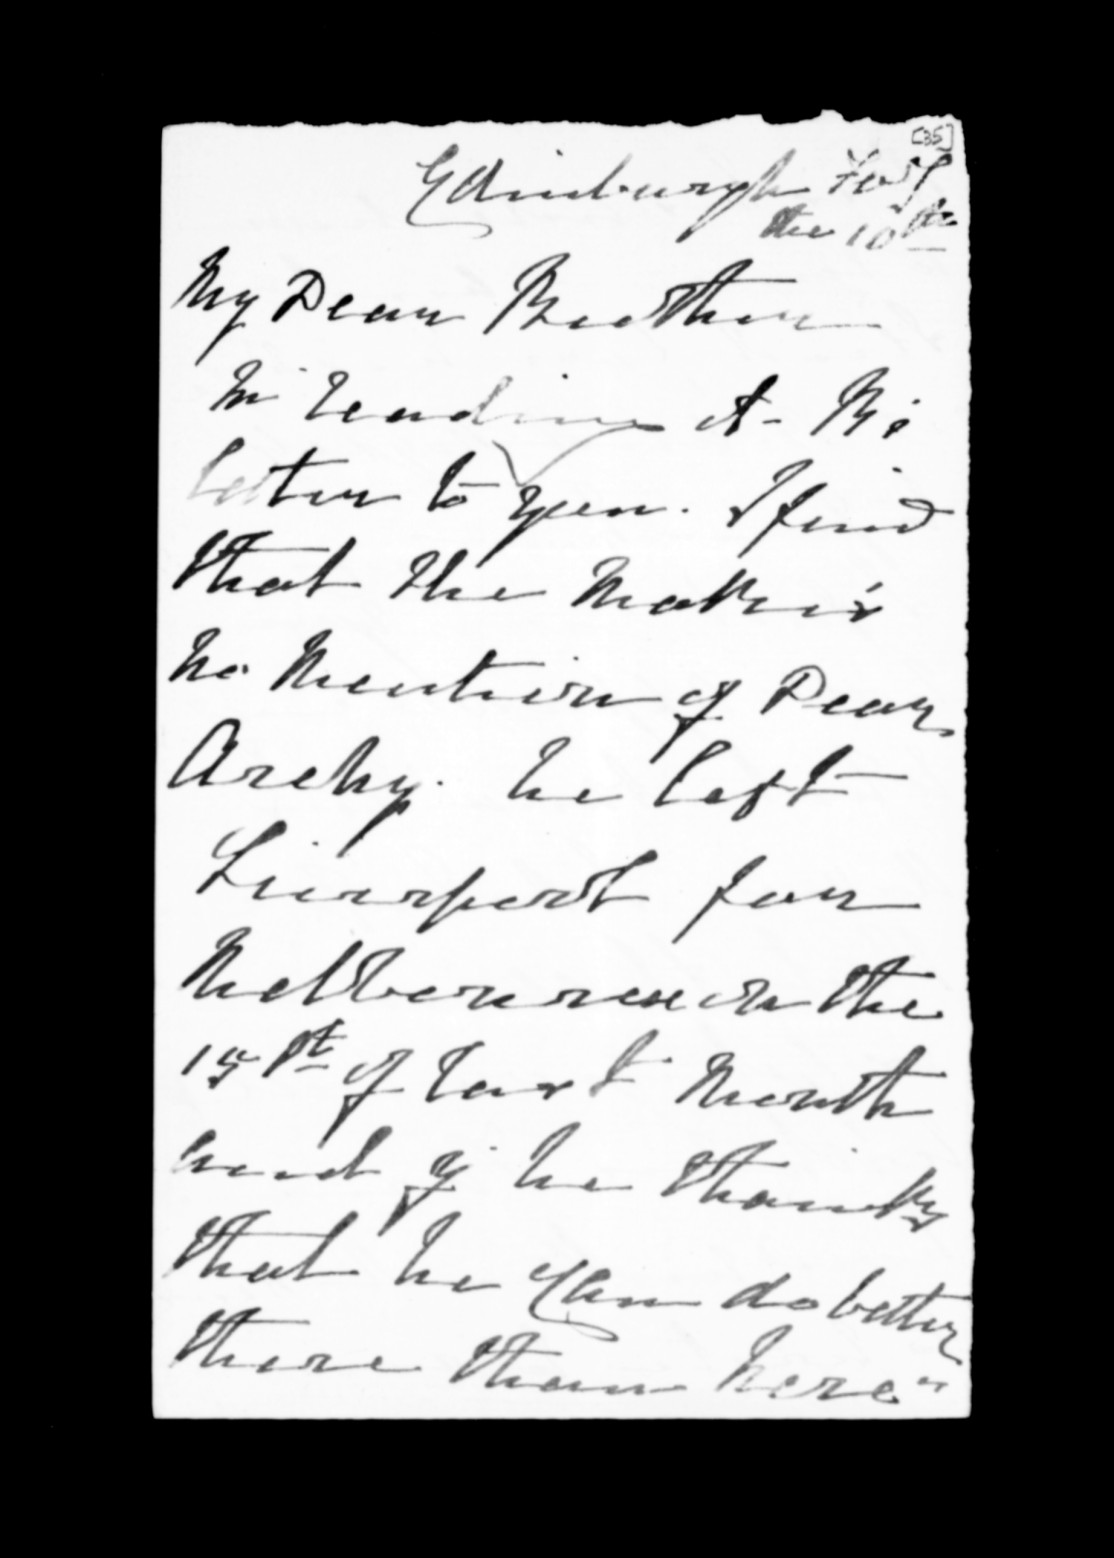 [35]
Edinburgh
the 10th
My Dear Brother
In reading A-
letter to you. I find
that the makes
no mention of Dear
Archy. he left
Liverpool for
Melbourne on the
15th of last Month
and if he thinks
that he Can do better
there than here"